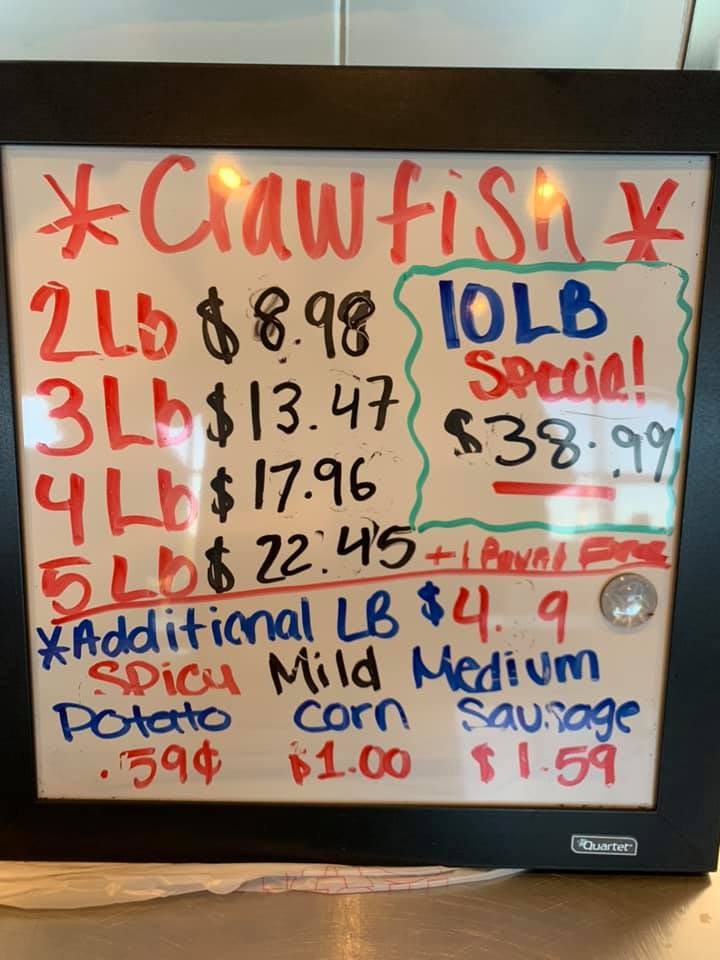 *Crawfish*
2Lb $8.98
3Lb $13.47
4Lb $17.96
5Lb $22.45 +1 Pound Free
10LB
Special
$38.99
*Additional LB $4. 9
Spicy Mild Medium
Potato Corn Sausage
.59¢ $1.00 $1.59
Quartet